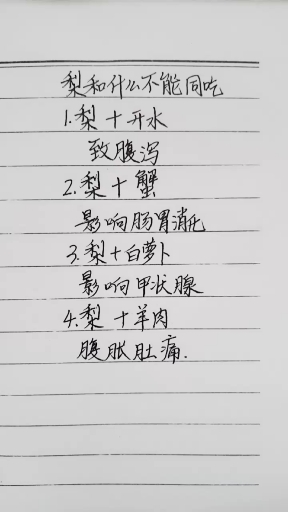 梨和什么不能同吃
1.梨+开水
致腹泻
2.梨+蟹
影响肠胃消化
3.梨+白萝卜
影响甲状腺
4.梨+羊肉
腹胀肚痛.